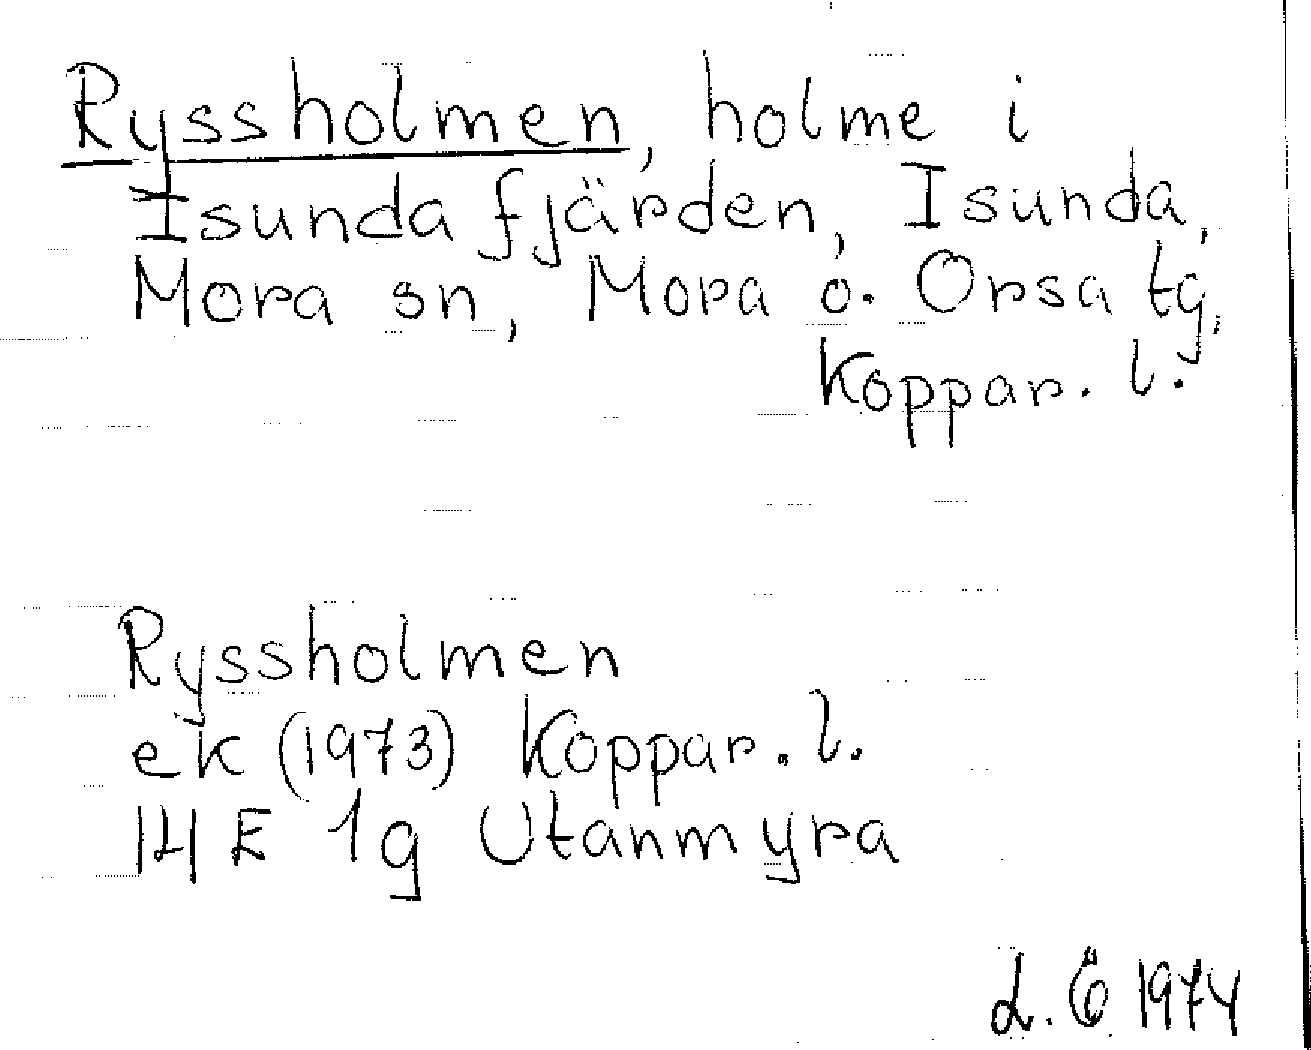 Ryssholmen, holme i
Isundafjärden, Isunda,
Mora sn, Mora o. Orsa tg,
Koppar. l.
Ryssholmen
ek (1973) Koppar. l.
14 E 1g Utanmyra
L. Ö 1974